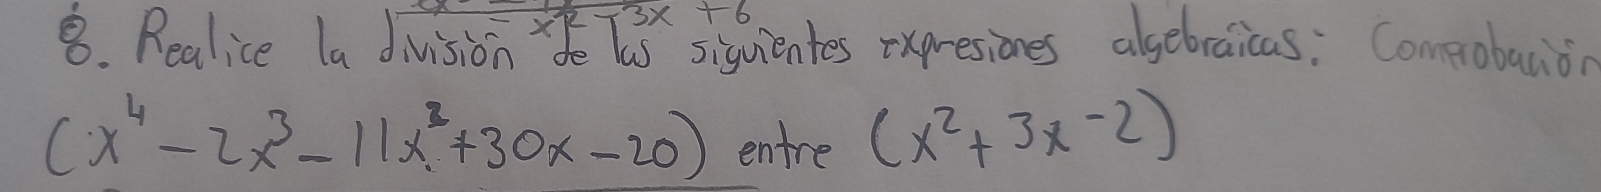 x² - 3x + 6
8. Realice la división de las siguientes expresiones algebraicas: Comprobación
(x⁴ - 2x³ - 11x² + 30x - 20) entre (x² + 3x - 2)